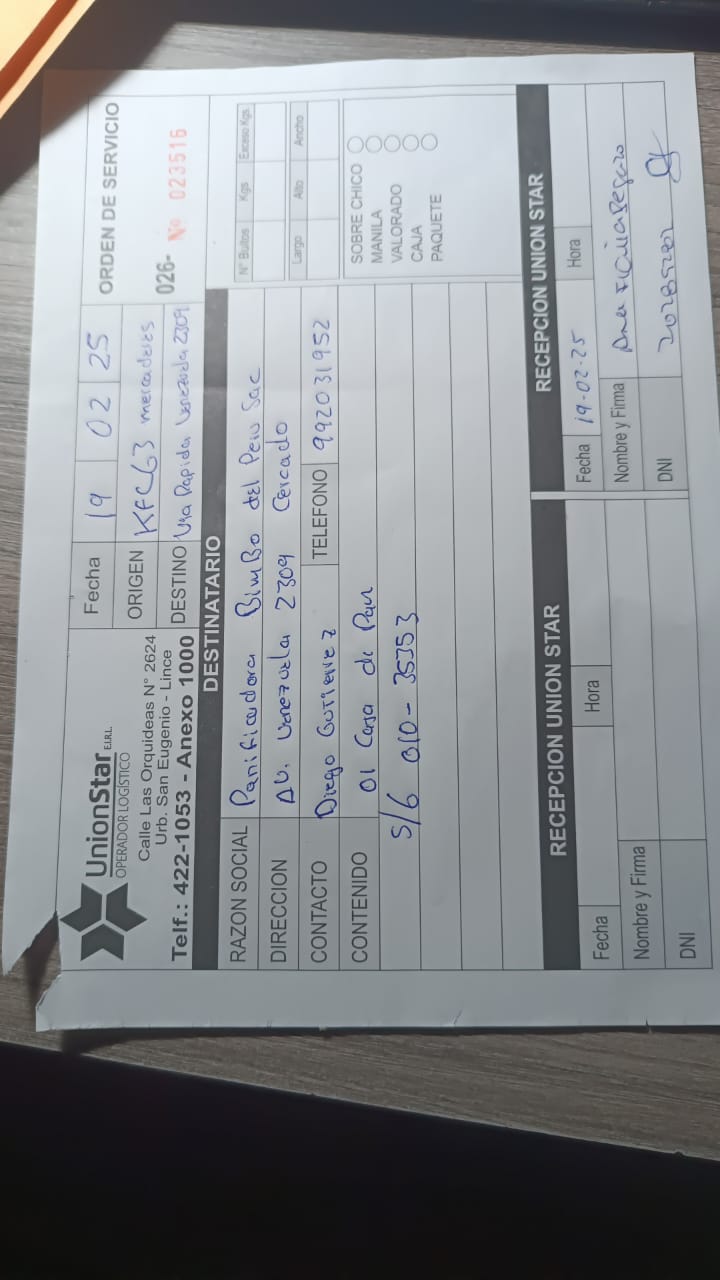 UnionStar E.I.R.L.
OPERADOR LOGÍSTICO
Calle Las Orquideas N° 2624
Urb. San Eugenio - Lince
Telf.: 422-1053 - Anexo 1000
Fecha 19 02 25
ORIGEN KFC63 mercaderes
DESTINO Via Rapida Venezuela 2309
ORDEN DE SERVICIO
026- Nº 023516
DESTINATARIO
RAZON SOCIAL Panificadora Bimbo del Peru Sac
DIRECCION Av. Venezuela 2309 Cercado
CONTACTO Diego Gutierrez TELEFONO 992031952
CONTENIDO 01 Caja de Pan
S/G 010-35353
N° Bultos Kgs Exceso Kgs.
Largo Alto Ancho
SOBRE CHICO
MANILA
VALORADO
CAJA
PAQUETE
RECEPCION UNION STAR
Fecha Hora
Nombre y Firma
DNI
RECEPCION UNION STAR
Fecha 19-02-25 Hora
Nombre y Firma
DNI